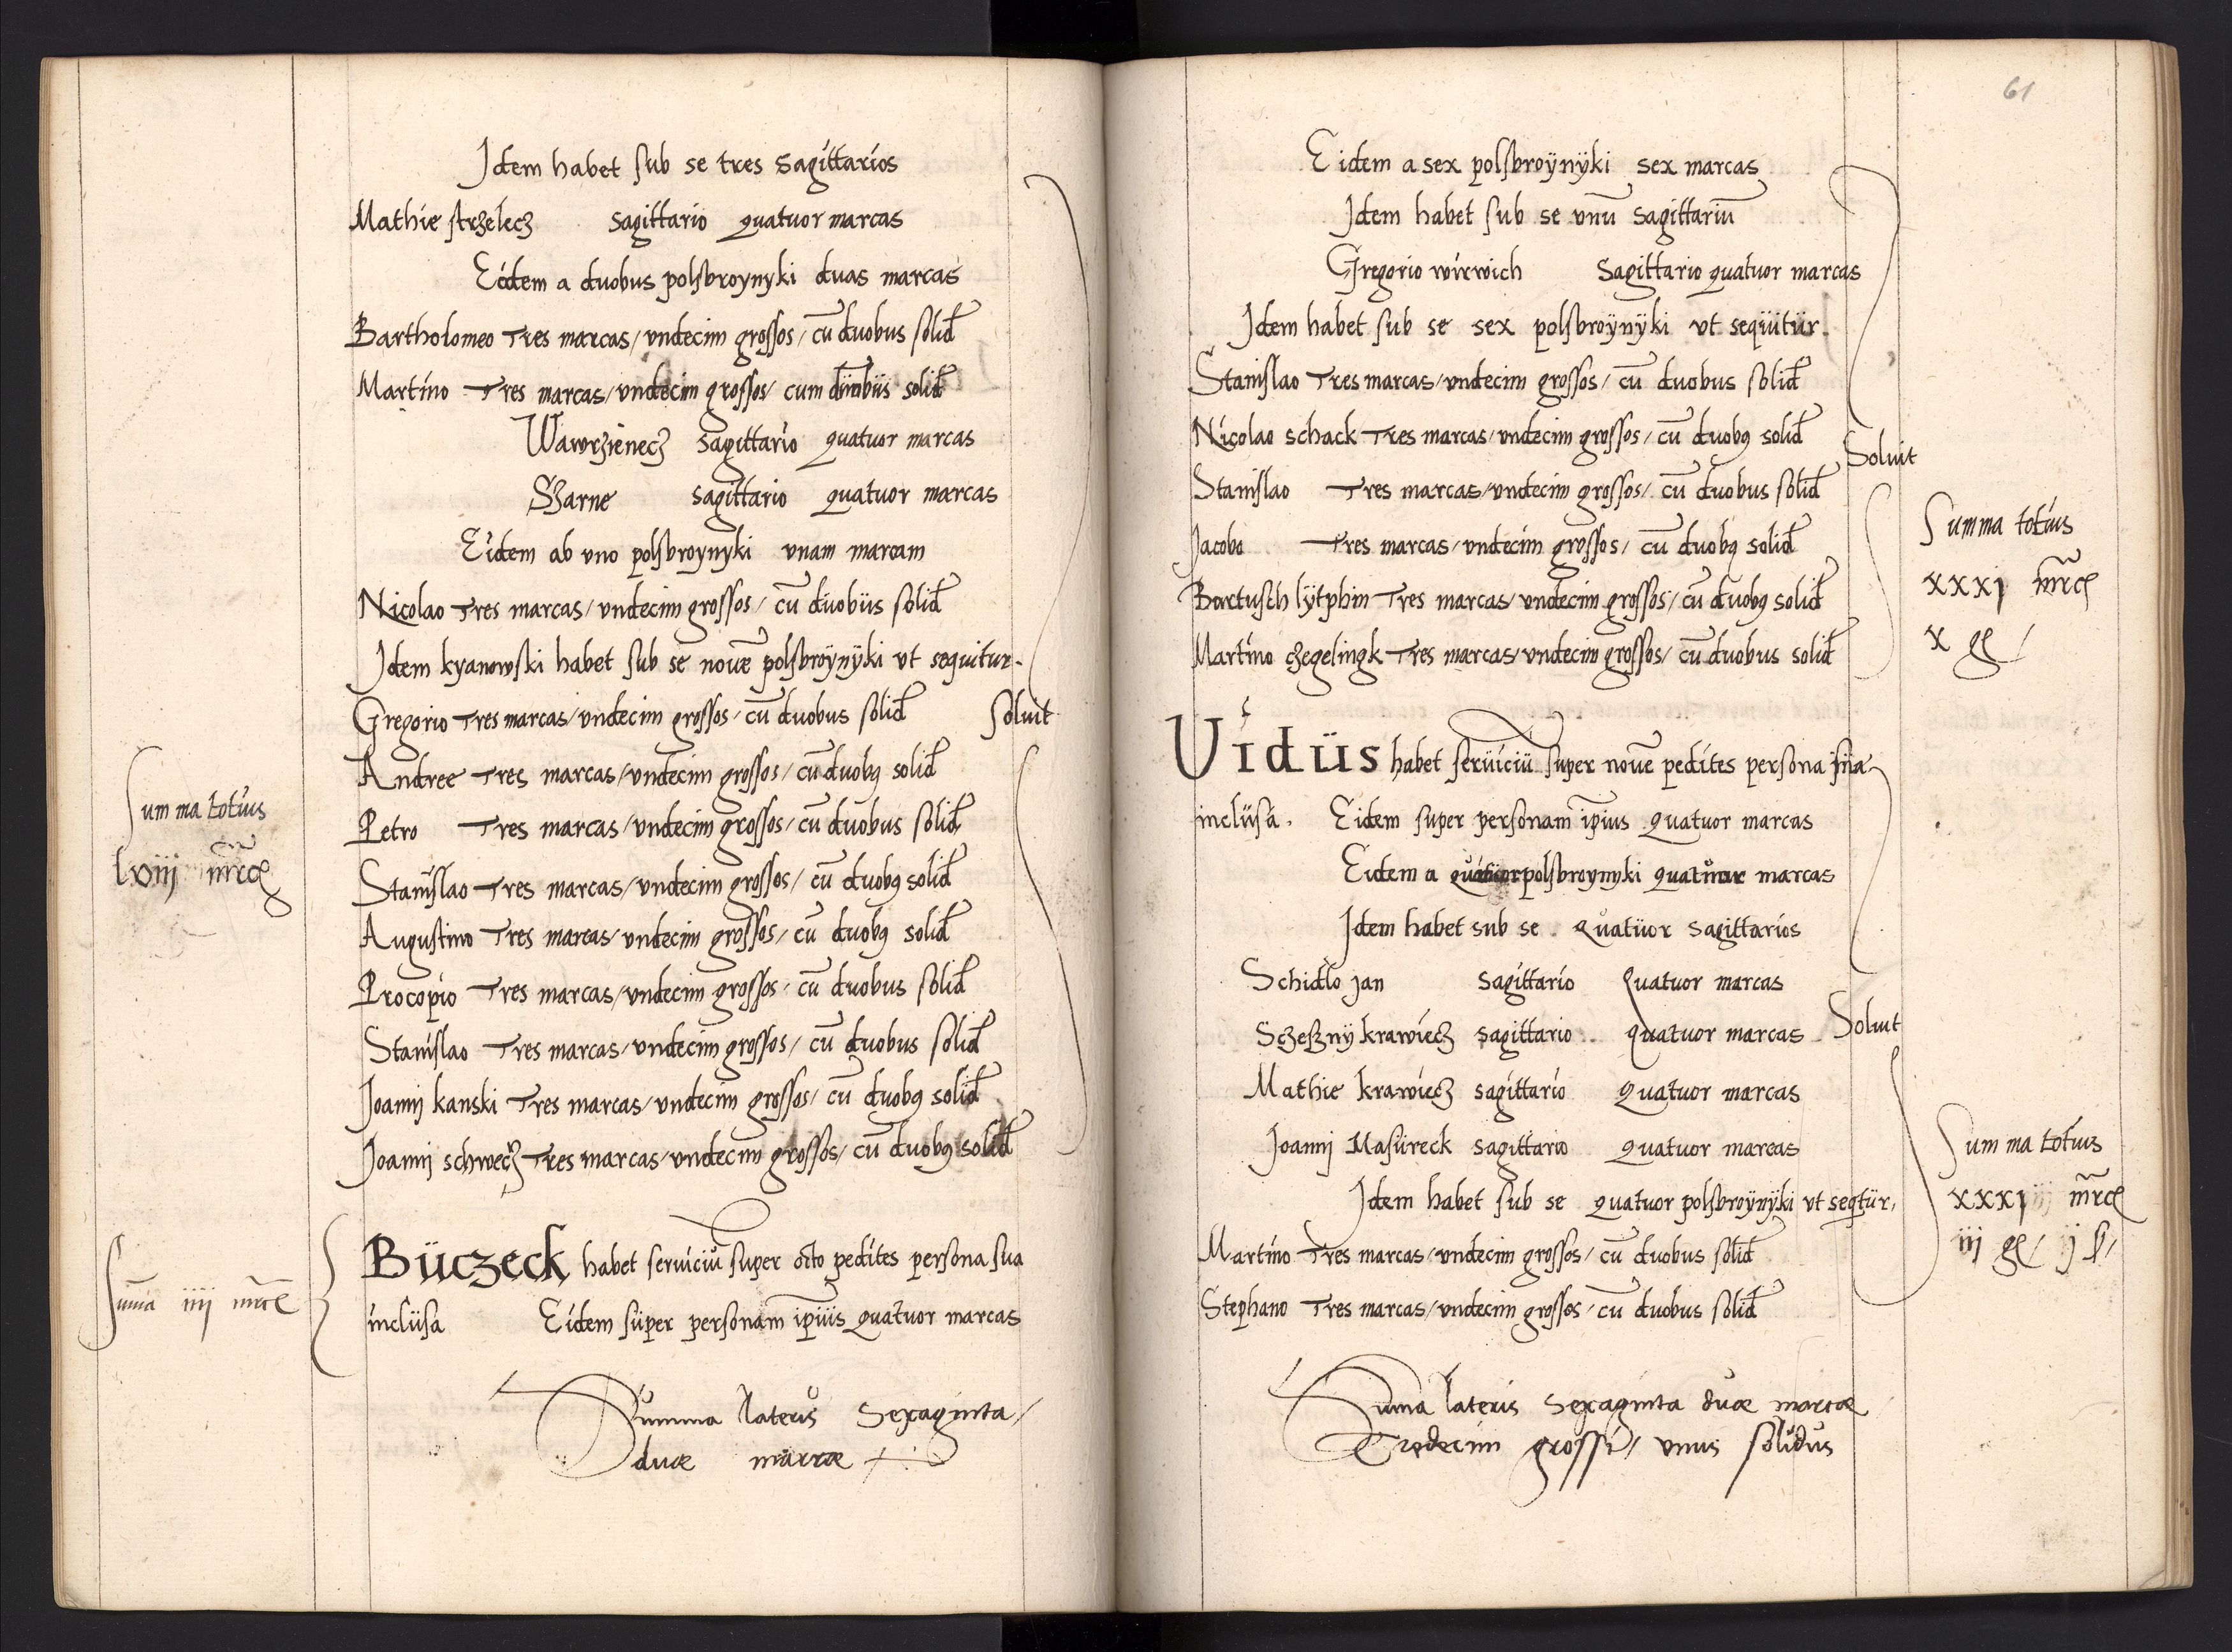 Idem habet sub se tres sagittarios
Mathie strzelecz sagittario quatuor marcas
Eidem a duobus polsbroynyki duas marcas
Bartholomeo Tres marcas/ undecim grossos/ cū duobus solid
Martino Tres marcas/ undecim grossos/ cum duobus solid
Wawrzienecz sagittario quatuor marcas
Szarne sagittario quatuor marcas
Eidem ab uno polsbroynyki unam marcam
Nicolao Tres marcas/ undecim grossos/ cū duobus solid
Idem kyanowski habet sub se nouē polsbroÿnÿki ut sequitur.
Gregorio Tres marcas/ undecim grossos/ cū duobus solid
soluit
Andree Tres marcas/ undecim grossos/ cū duobꝫ solid
Petro Tres marcas/ undecim grossos/ cū duobus solid
Summa totius
lviij mrcꝭ
Stanislao Tres marcas/ undecim grossos/ cū duobꝫ solid
Augustino Tres marcas/ undecim grossos/ cū duobꝫ solid
Procopio Tres marcas/ undecim grossos/ cū duobus solid
Stanislao Tres marcas/ undecim grossos/ cū duobus solid
Joanni kanski Tres marcas/ undecim grossos/ cū duobꝫ solid
Joanni schwecz Tres marcas/ undecim grossos/ cū duobꝫ solid
Büczeck habet seruiciū super octo pedites persona sua
inclusa Eidem super personam ipius quatuor marcas
Suma iiij mrce
Summa lateris Sexaginta/
duæ marcæ
61
Eidem a sex polsbroÿnÿki sex marcas
Idem habet sub se unū sagittariū
Gregorio wirwich sagittario quatuor marcas
Idem habet sub se sex polsbroÿnÿki ut sequitur.
Stanislao Tres marcas/ undecim grossos/ cū duobus solid
Nicolao schack Tres marcas/ undecim grossos/ cū duobꝫ solid
Soluit
Stanislao Tres marcas/ undecim grossos/ cū duobus solid
Jacobo Tres marcas/ undecim grossos/ cū duobꝫ solid
Bartusch lÿtphin Tres marcas/ undecim grossos/ cū duobꝫ solid
Martino czegelingk Tres marcas/ undecim grossos/ cū duobus solid
Summa totius
xxxj mrcꝭ
x gꝭ
Vidüs habet seruiciū super nouē pedites persona sua
inclusa. Eidem super personam ipius quatuor marcas
Eidem a quatuor polsbroynyki quatuor marcas
Idem habet sub se quatuor sagittarios
Schidlo Jan sagittario quatuor marcas
Sczesznÿ krawiecz sagittario quatuor marcas
Soluit
Mathie krawiecz sagittario quatuor marcas
Joanni Masureck sagittario quatuor marcas
Idem habet sub se quatuor polsbroÿnÿki ut seqtür.
Martino Tres marcas/ undecim grossos/ cū duobus solid
Stephano Tres marcas/ undecim grossos/ cū duobus solid
Summa totius
mrcꝭ
iij gꝭ/ ij ß/
Suma lateris Sexaginta duæ marcæ
Tredecim grossi/ unus solidus